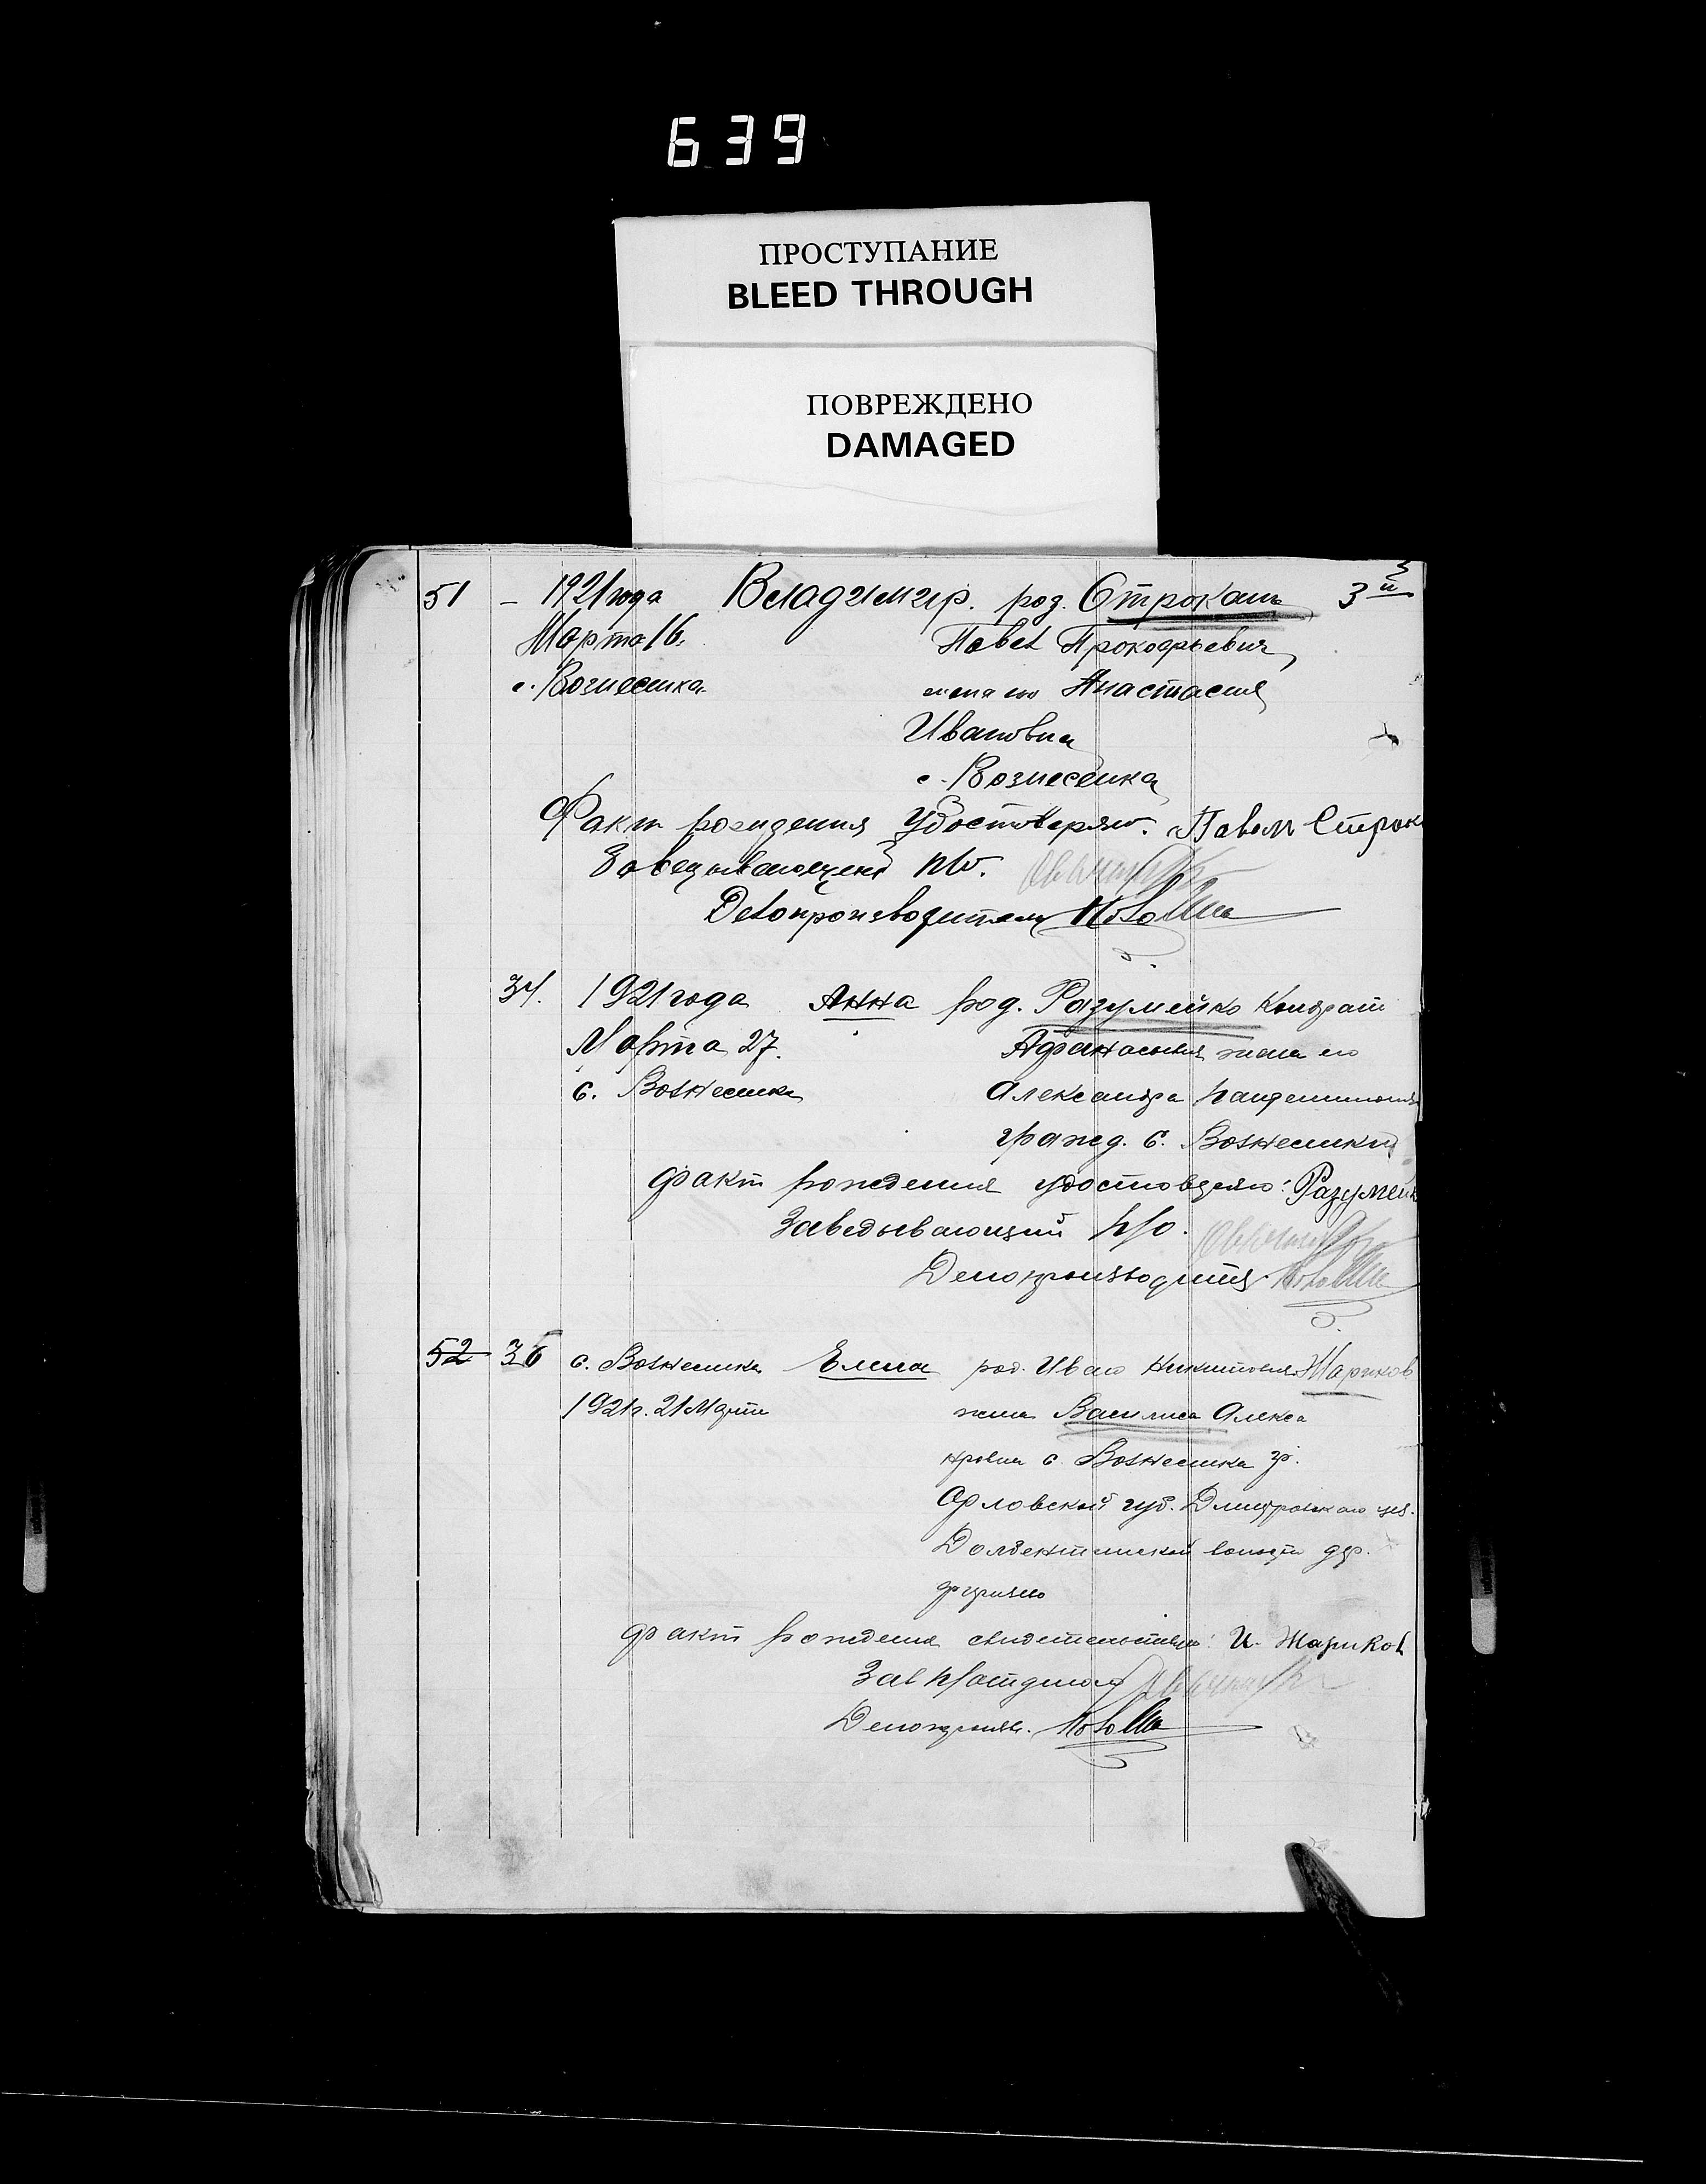 639
ПРОСТУПАНИЕ
BLEED THROUGH
ПОВРЕЖДЕНО
DAMAGED
51 – 1921 года Владимир. род. Строкань 3й
Марта 16. Павел Прокофьевич
с. Вознесенка жена его Анастасия
Ивановна
с. Вознесенка
Факт рождения удостоверяю. Павел Строк
Заведывающий п/о.
Делопроизводитель
34. 1921 года Анна род. Разумейко Кондрат
Марта 27. Афанасьевич жена его
с. Вознесенка Александра
гражд. с. Вознесенки
факт рождения удостоверяю: Разумейк
Заведывающий п/о.
Делопроизводитель
52 36 с. Вознесенка Елена род. Иван Никитович Жариков
1921 г. 21 Марта жена Василиса Алекса
ндровна с. Вознесенка гр.
Орловской губ. Дмитровского уез.
волости дер.
факт рождения свидетельствую: И. Жариков
Зав п/отделом
Делопроизв.